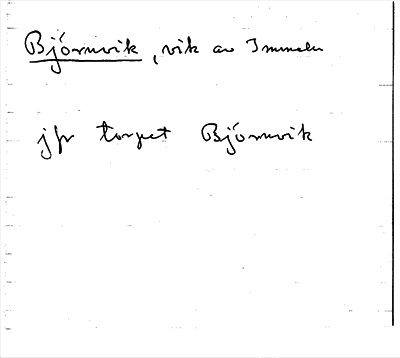 Björnvik, vik av Immeln
jfr torpet Björnvik